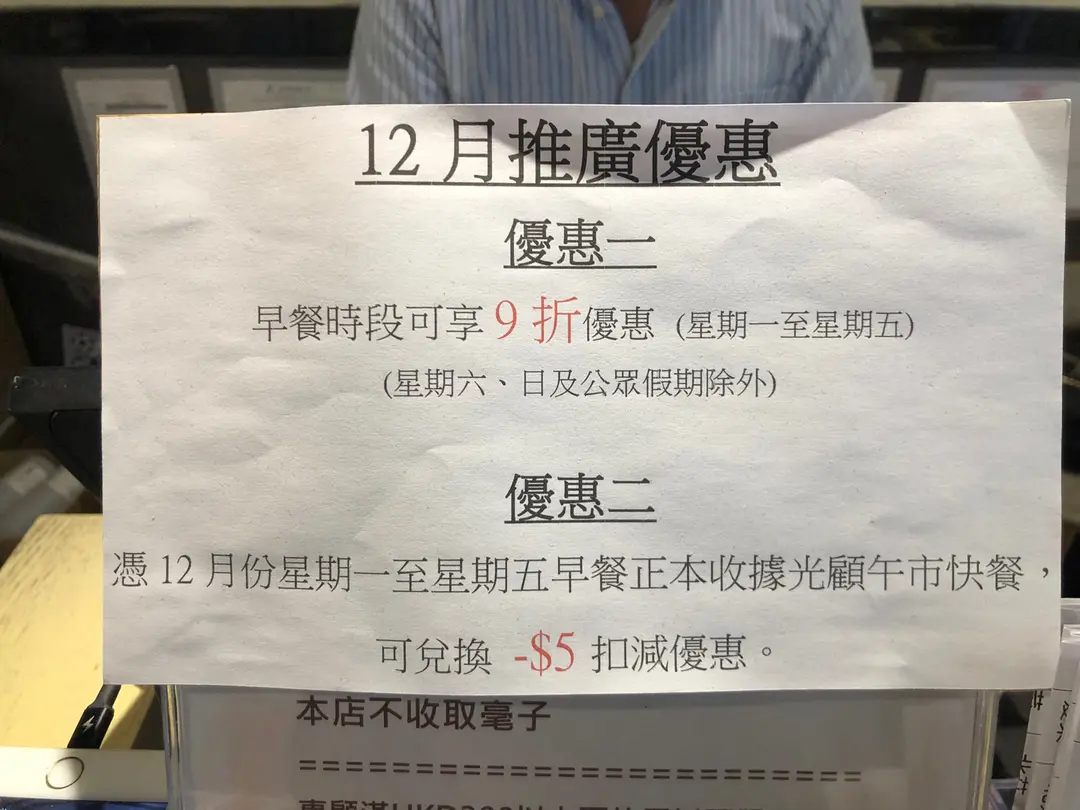 12 月推廣優惠
優惠一
早餐時段可享 9 折優惠 (星期一至星期五)
(星期六、日及公眾假期除外)
優惠二
憑 12 月份星期一至星期五早餐正本收據光顧午市快餐，
可兌換 -$5 扣減優惠。
本店不收取毫子
==============================